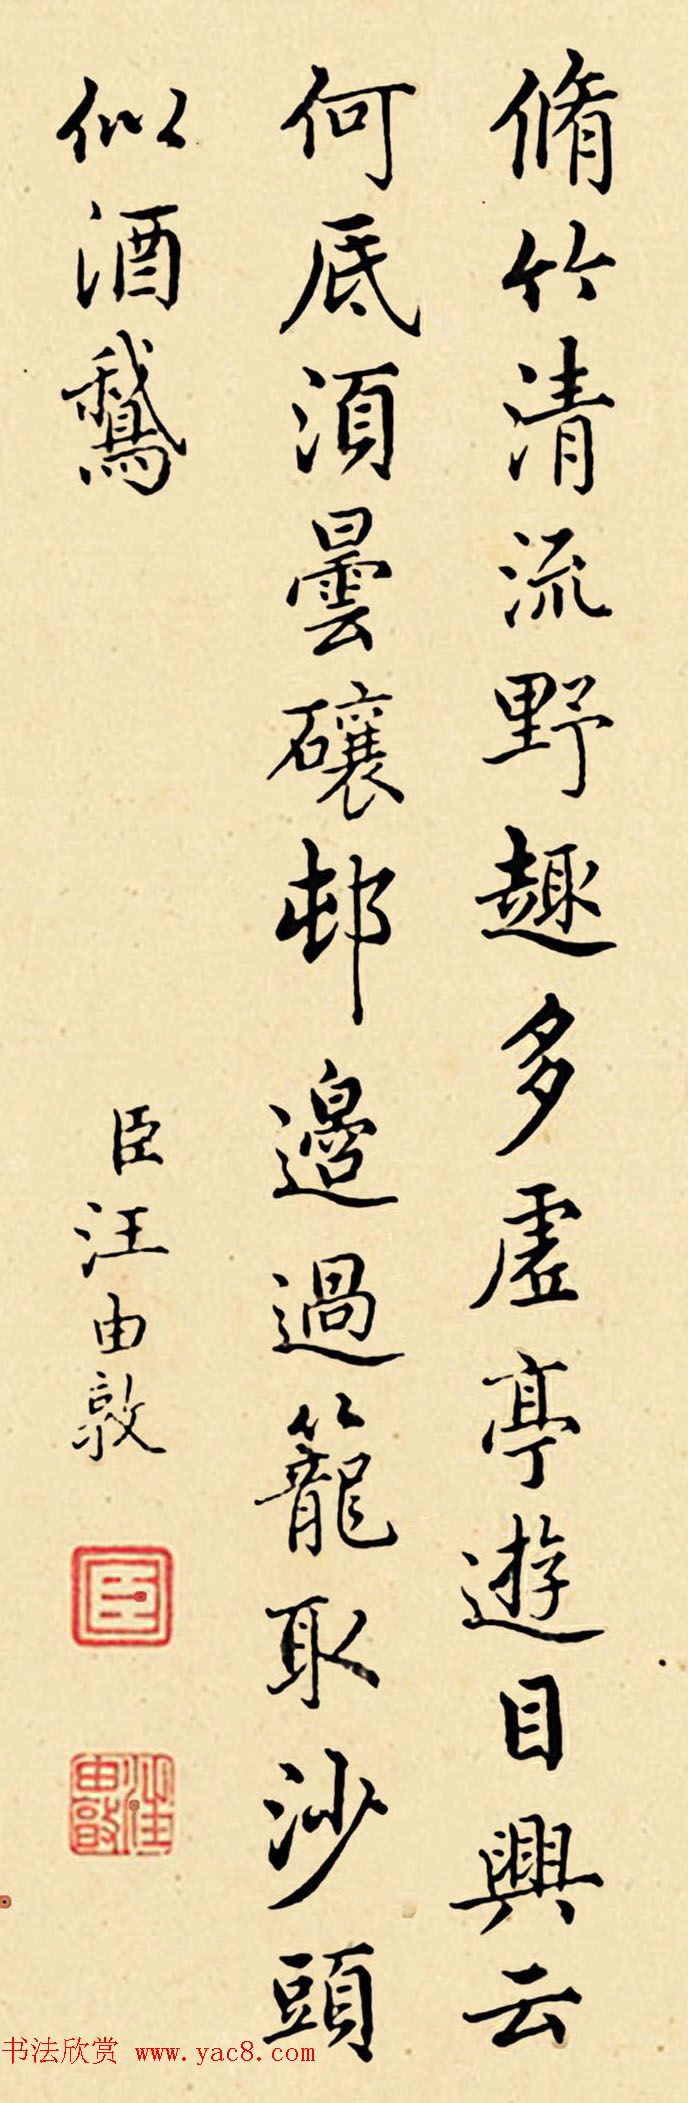 脩竹清流野趣多虛亭遊目興云
何底須曇礢邨邊過籠取沙頭
似酒鵝
臣汪由敦
臣
汪由敦
书法欣赏 www.yac8.com